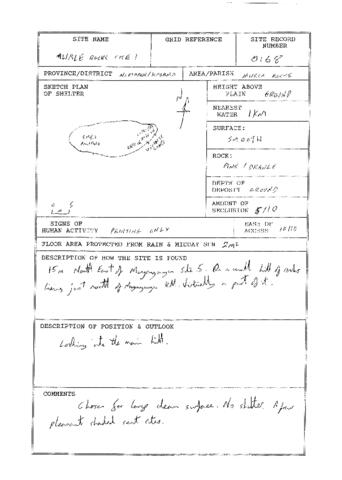 SITE NAME
GRID REFERENCE
SITE RECORD NUMBER
ROCKS SITE 1
0168
PROVINCE/DISTRICT
AREA/PARISH
ROCKS
SKETCH PLAN OF SHELTER
N
HEIGHT ABOVE PLAIN GROUND
NEAREST WATER 1 KM
SURFACE:
SMOOTH
ROCK:
PINK / ORANGE
DEPTH OF DEPOSIT GROUND
AMOUNT OF SECLUSION 5/10
0 5
SIGNS OF HUMAN ACTIVITY PAINTING ONLY
EASE OF ACCESS 10/10
FLOOR AREA PROTECTED FROM RAIN & MIDDAY SUN 2m²
DESCRIPTION OF HOW THE SITE IS FOUND
15m North East of Site 5. On a small hill of rocks
just north of Hill. Virtually a part of it.
DESCRIPTION OF POSITION & OUTLOOK
Looking into the main hill.
COMMENTS
Chosen for large clean surface. No shelter. A few
pleasant shaded rest sites.